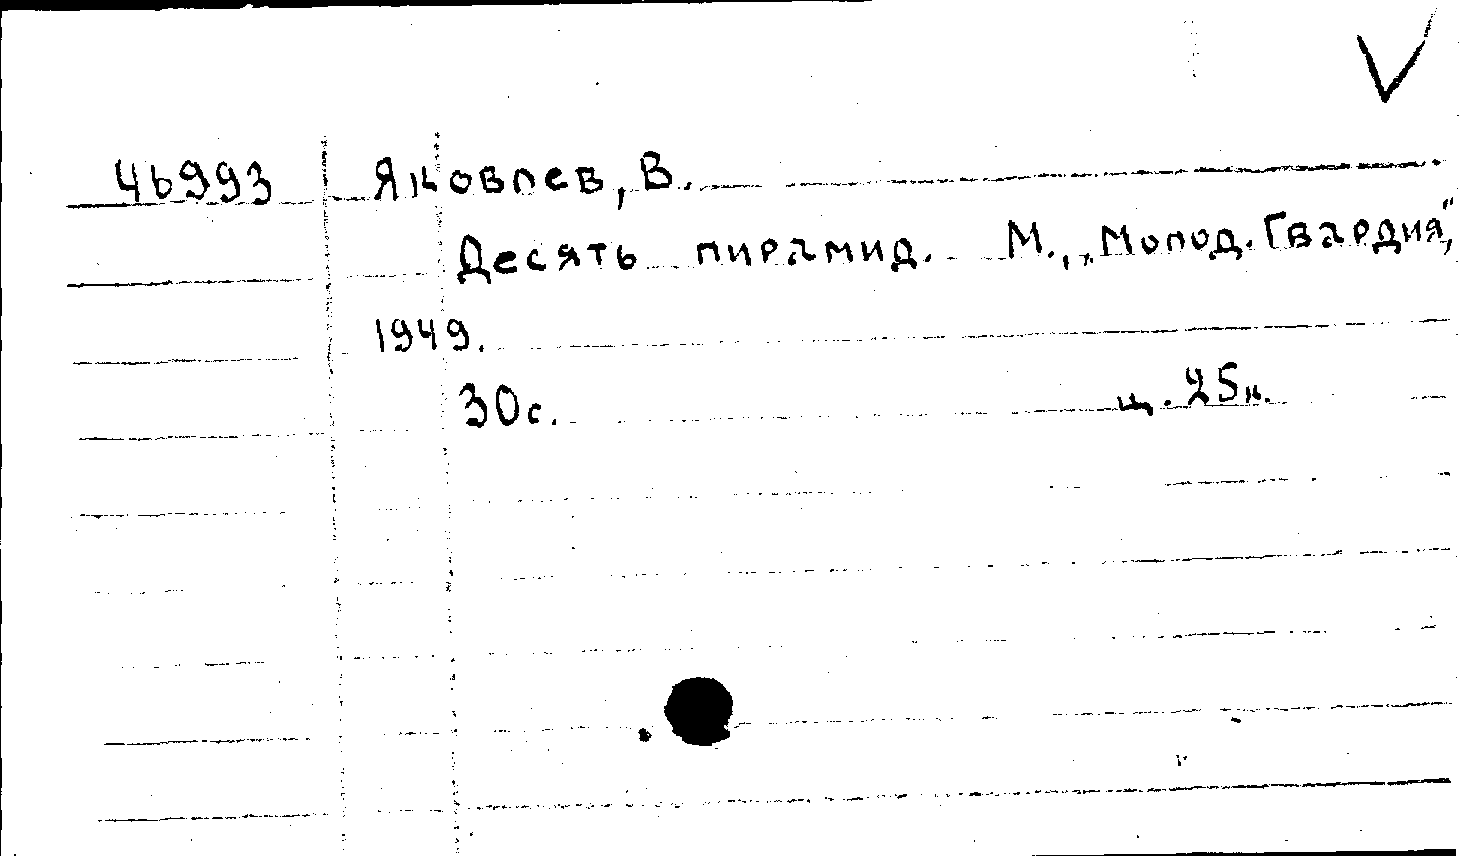 46993 Яковлев, В.
Десять пирамид. М., „Молод. Гвардия",
1949.
30с. ц. 25к.